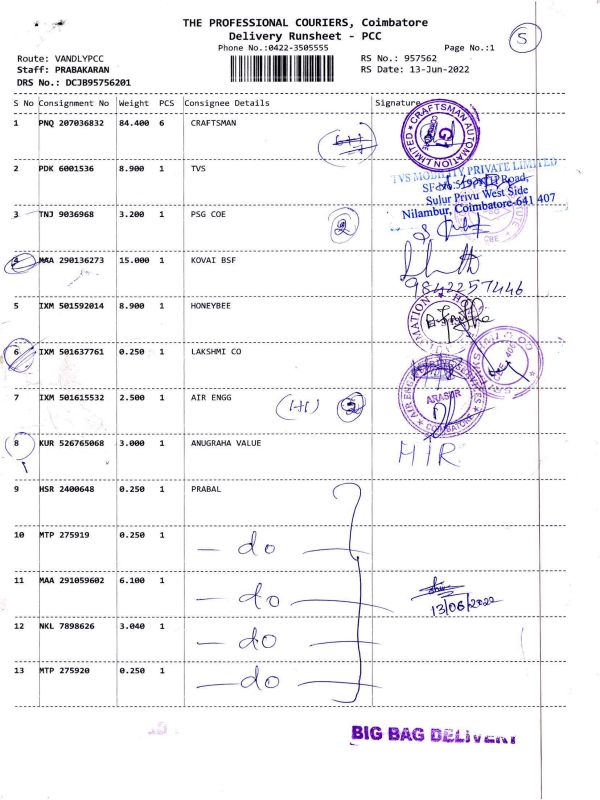 THE PROFESSIONAL COURIERS, Coimbatore
Delivery Runsheet - PCC
Phone No.:0422-3505555
Page No.:1
5
Route: VANDLYPCC
RS No.: 957562
Staff: PRABAKARAN
RS Date: 13-Jun-2022
DRS No.: DCJB95756201
S No Consignment No Weight PCS Consignee Details Signature
1 PNQ 207036832 84.400 6 CRAFTSMAN
CRAFTSMAN AUTOMATION LIMITED
2 PDK 6001536 8.900 1 TVS
TVS MOBILITY PRIVATE LIMITED
Road,
Sulur Privu West Side
Nilambur, Coimbatore-641 407
3 TNJ 9036968 3.200 1 PSG COE
2
CBE
4 MAA 290136273 15.000 1 KOVAI BSF
9842257446
5 IXM 501592014 8.900 1 HONEYBEE
6 IXM 501637761 0.250 1 LAKSHMI CO
7 IXM 501615532 2.500 1 AIR ENGG
(1+1) 2
ARASUR
COIMBATORE
8 KUR 526765068 3.000 1 ANUGRAHA VALUE
HIR
9 HSR 2400648 0.250 1 PRABAL
10 MTP 275919 0.250 1 — do —
11 MAA 291059602 6.100 1 — do —
13/06/2022
12 NKL 7898626 3.040 1 — do —
13 MTP 275920 0.250 1 — do —
BIG BAG DELIVERY